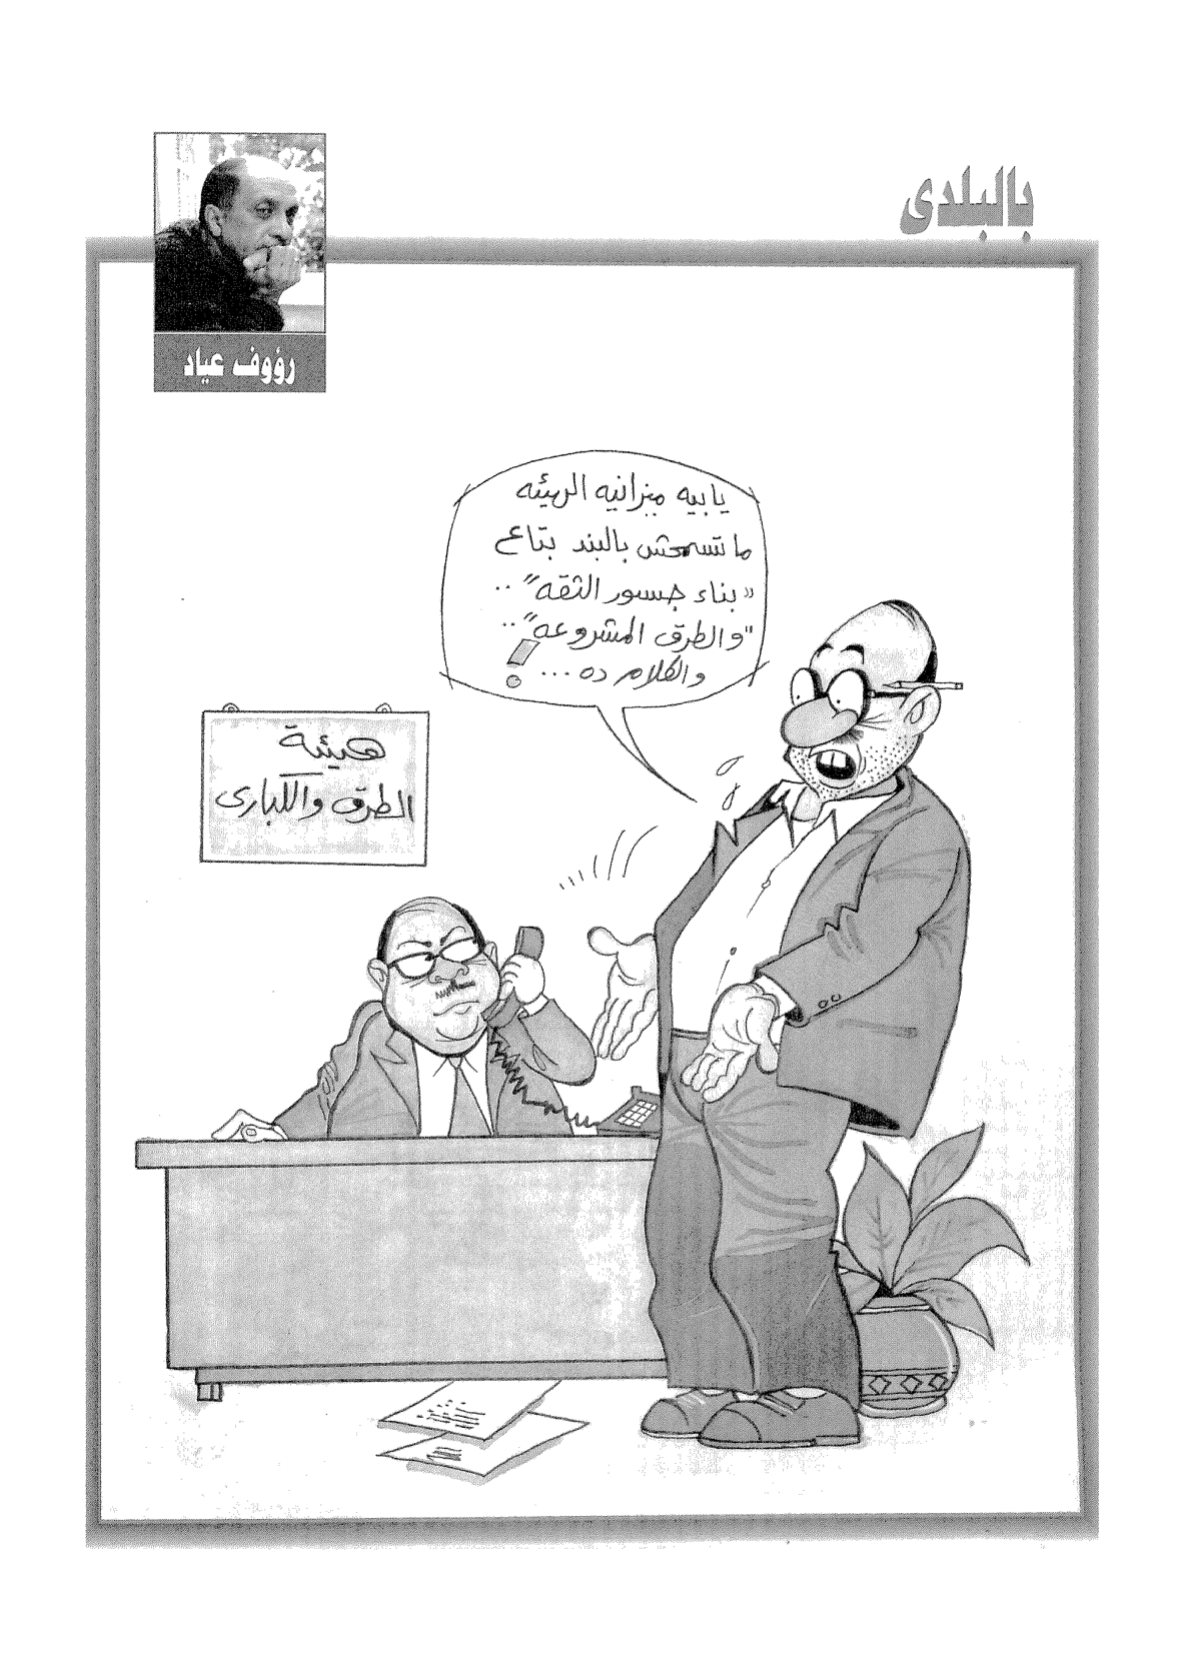 بالبلدى
رؤوف عياد
يا بيه ميزانيه الهيئه
ما تسمحش بالبند بتاع
"بناء جسور الثقه"..
"والطرق المشروعه"..
والكلام ده...!
هيئة
الطرق والكبارى